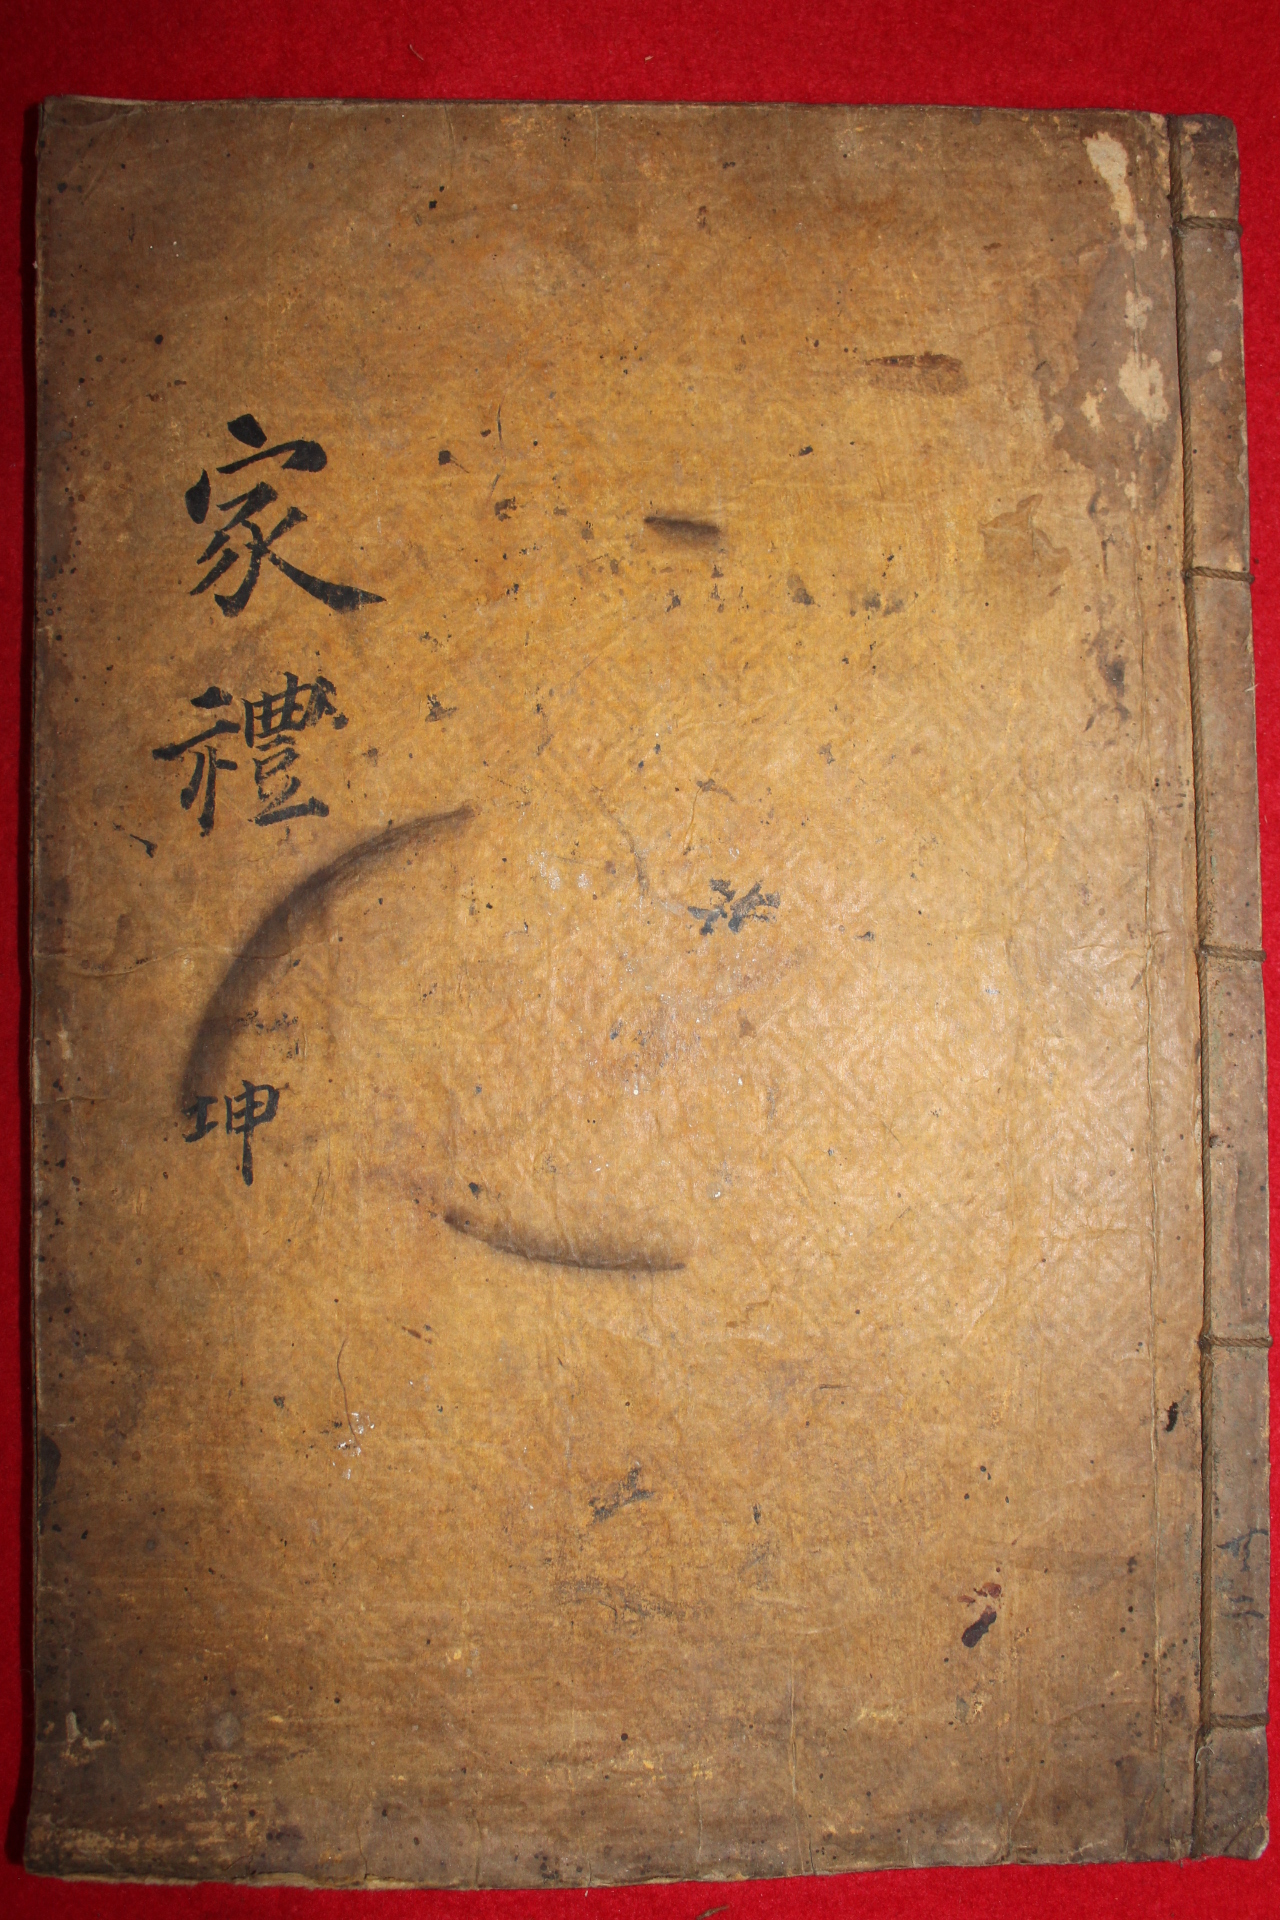 家禮
坤